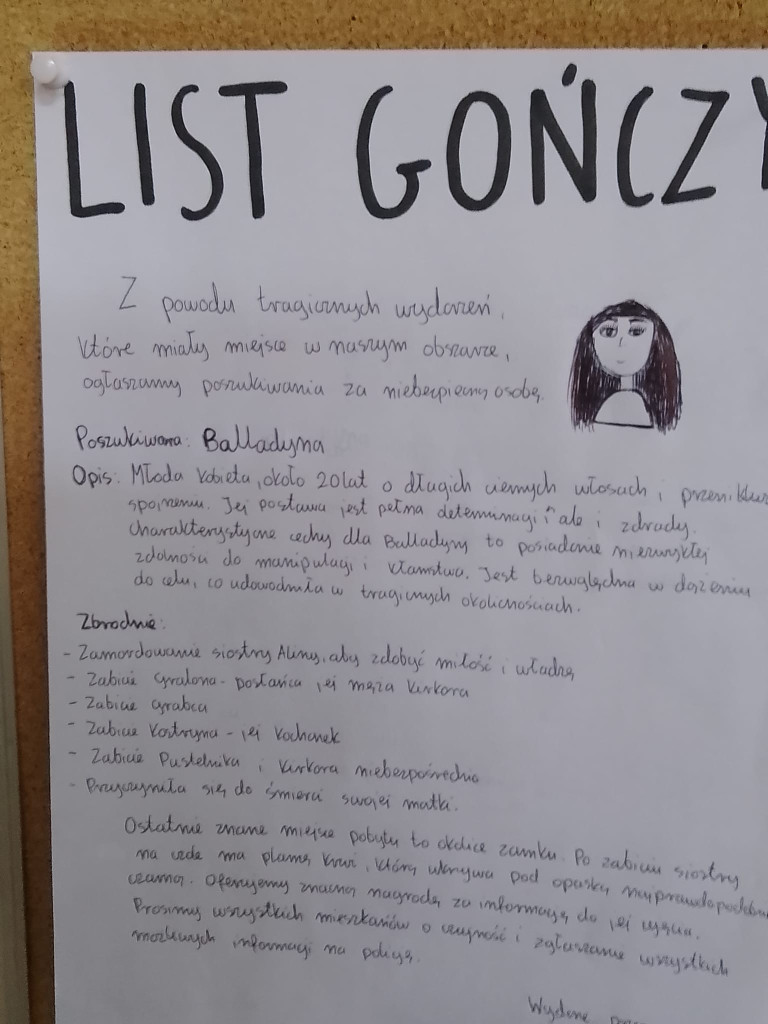 LIST GOŃCZY
Z powodu tragicznych wydarzeń,
które miały miejsce w naszym obszarze,
ogłaszamy poszukiwania za niebezpieczną osobę.
Poszukiwana: Balladyna
Opis: Młoda kobieta, około 20 lat o długich ciemnych włosach i
spojrzeniu. Jej postawa jest pełna determinacji ale i zdrady.
Charakterystyczne cechy dla Balladyny to posiadanie niezwykłej
zdolności do manipulacji i kłamstwa. Jest bezwzględna w dążeniu
do celu, co udowodniła w tragicznych okolicznościach.
Zbrodnie:
- Zamordowanie siostry Aliny, aby zdobyć miłość i władzę
- Zabicie Gralona - posłańca jej męża Kirkora
- Zabicie Grabca
- Zabicie Kostryna - jej kochanek
- Zabicie Pustelnika i Kirkora niebezpośrednio
- Przyczyniła się do śmierci swojej matki.
Ostatnie znane miejsce pobytu to okolice zamku. Po zabiciu siostry
na czole ma plamę krwi, którą ukrywa pod opaską
czarną. Oferujemy znaczną nagrodę za informację do jej ujęcia.
Prosimy wszystkich mieszkańców o czujność i zgłaszanie wszystkich
możliwych informacji na policję.
Wydane